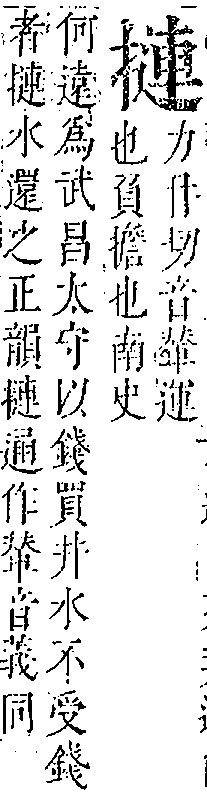 摙力什切音輦運
也負擔也南史
何遠為武昌太守以錢買井水不受錢
者摙水還之正韻摙通作輦音義同